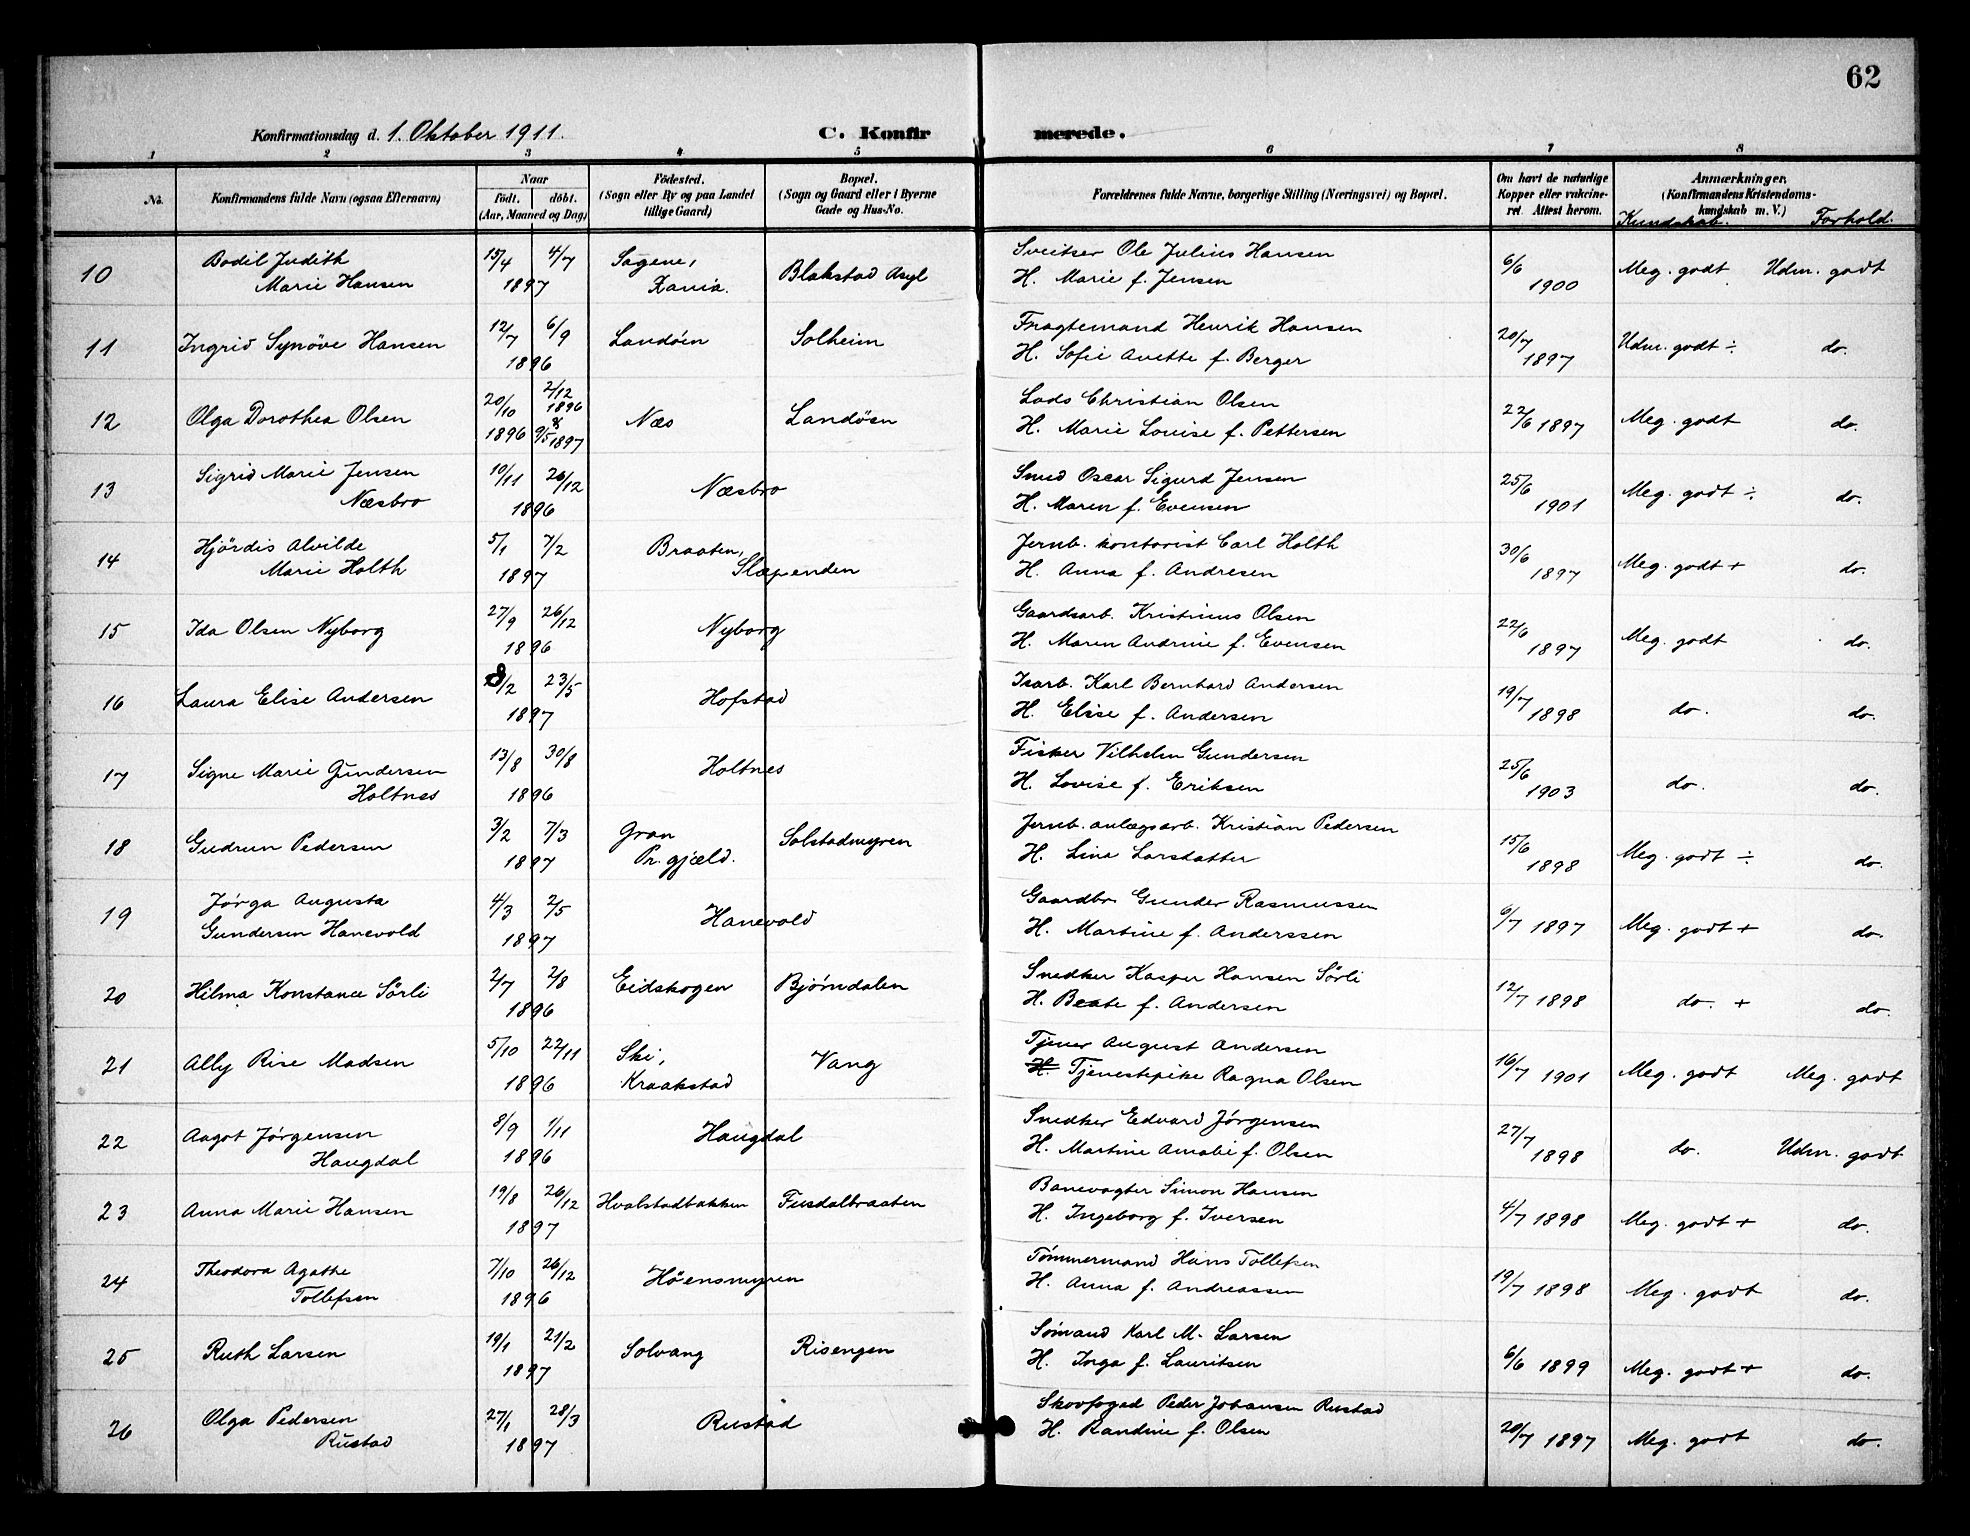 62
Konfirmationsdag d. 1. Oktober 1911.
C. Konfirmerede.
1 2 3 4 5 6 7 8
No. Konfirmandens fulde Navn (ogsaa Efternavn) Naar Födt. döbt. (Aar, Maaned og Dag) Födested. (Sogn eller By og paa Landet tillige Gaard) Bopæl. (Sogn og Gaard eller i Byerne Gade og Hus-No. Forældrenes fulde Navne, borgerlige Stilling (Næringsvei) og Bopæl. Om havt de naturlige Kopper eller vakcineret. Attest herom. Anmærkninger. (Konfirmandens Kristendomskundskab m. V.) Kundskab. Forhold.
10 Bodil Judith 15/4 4/7 Sagene, Blakstad Asyl Sveitser Ole Julius Hansen 6/6 Meg. godt Udm. godt
Marie Hansen 1897 Xania. H. Marie f. Jensen 1900
11 Ingrid Synöve Hansen 12/7 6/9 Landöen Solheim Fragtemand Henrik Hansen 20/7 Udm. godt ÷ do.
1896 H. Sofie Anette f. Berger 1897
12 Olga Dorothea Olsen 20/10 2/12 1896 Næs Landösen Lods Christian Olsen 22/6 1897 Meg. godt do.
1896 & 9/5 1897 H. Marie Louise f. Pettersen
13 Sigrid Marie Jensen 10/11 26/12 Næsbro Smed Oscar Sigurd Jensen 25/6 Meg. godt ÷ do.
Næsbro 1896 H. Maren f. Evensen 1901
14 Hjördis Alvilde 5/1 7/2 Braaten, Jernb. kontorist Carl Holth 30/6 Meg. godt + do.
Marie Holth 1897 Slæpenden H. Anna f. Andresen 1897
15 Ida Olsen Nyborg 27/9 26/12 Nyborg Gaardsarb. Kristinus Olsen 22/6 Meg. godt do.
1896 H. Maren Andrine f. Evensen 1897
16 Laura Elise Andersen 8/2 23/5 Hofstad Isarb. Karl Bernhard Andersen 19/7 do. do.
1897 H. Elise f. Andersen 1898
17 Signe Marie Gundersen 13/8 30/8 Holtnes Fisker Vilhelm Gundersen 25/6 do. do.
Holtnes 1896 H. Lovise f. Eriksen 1903
18 Gudrun Pedersen 3/2 7/3 Gran Solstadmyren Jernb. anlægsarb. Kristian Pedersen 15/6 Meg. godt ÷ do.
1897 Pr. gjæld. H. Lina Larsdatter 1898
19 Jörga Augusta 4/3 2/5 Hanevold Gaardbr. Gunder Rasmussen 6/7 1897 Meg. godt + do.
Gundersen Hanevold 1897 H. Martine f. Anderssen
20 Hilma Konstance Sörli 2/7 2/8 Eidskogen Bjørndalen Snedker Kasper Hansen Sörli 12/7 1898 do. + do.
1896 H. Beate f. Andersen
21 Ally Rise Madsen 5/10 22/11 Ski, Vang Tjener August Andersen 16/7 1901 Meg. godt Meg. godt
1896 Kraakstad H. Tjenestepike Ragna Olsen
22 Aagot Jörgensen 8/9 1/11 Haugdal Snedker Edvard Jörgensen 27/7 do. Udm. godt
Haugdal 1896 H. Martine Amalie f. Olsen 1898
23 Anna Marie Hansen 19/8 26/12 Hvalstadbakken Fusdalbraaten Banevogter Simon Hansen 4/7 1898 Meg. godt + do.
1897 H. Ingeborg f. Iversen
24 Theodora Agathe 7/10 26/12 Höensmyren Tömmermand Hans Tollefsen 19/7 1898 Meg. godt do.
Tollefsen 1896 H. Anna f. Andreassen
25 Ruth Larsen 19/1 21/2 Solvang Risengen Sömand Karl M. Larsen 6/6 1899 Meg. godt + do.
1897 H. Inga f. Lauritsen
26 Olga Pedersen 27/1 28/3 Rustad Skovfoged Peder Johansen Rustad 20/7 1897 Meg. godt do.
Rustad 1897 H. Randine f. Olsen